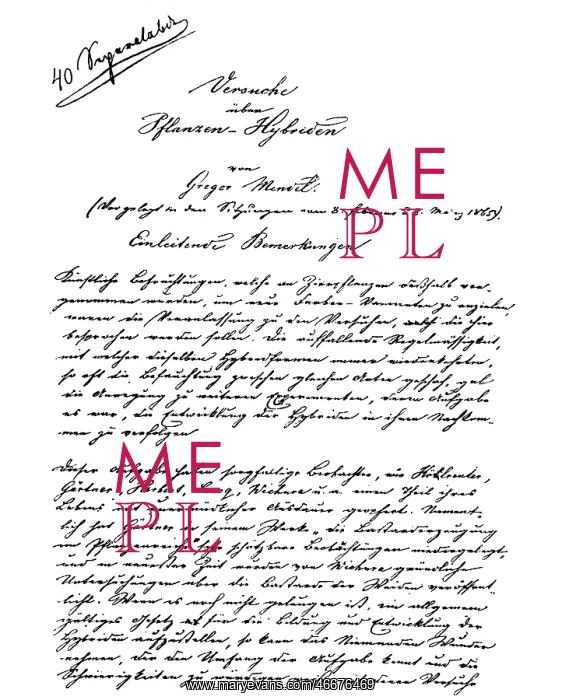 40 Separatabdr.
Versuche
über
Pflanzen-Hybriden
von
Gregor Mendel.
(Vorgelegt in den Sitzungen vom 8. Februar u. 8. März 1865).
Einleitende Bemerkungen
ME
PL
Künstliche Befruchtungen, welche an Zierpflanzen deßhalb vor-
genommen wurden, um neue Farben-Varianten zu erzielen,
waren die Veranlassung zu den Versuchen, welche die hier
besprochen werden sollen. Die auffallende Regelmässigkeit,
mit welcher dieselben Hybridformen immer wiederkehrten,
so oft die Befruchtung zwischen gleichen Arten geschah, gab
die Anregung zu weiteren Experimenten, deren Aufgabe
es war, die Entwicklung der Hybriden in ihren Nachkom-
men zu verfolgen
Dieser Aufgabe haben sorgfältige Beobachter, wie Kölreuter,
Gärtner, Herbert, Lecoq, Wichura u. a. einen Theil ihres
Lebens mit unermüdlicher Ausdauer geopfert. Nament-
lich hat Gärtner in seinem Werke „die Bastarderzeugung
im Pflanzenreiche" sehr schätzbare Beobachtungen niedergelegt,
und in neuester Zeit wurden von Wichura gründliche
Untersuchungen über die Bastarde der Weiden veröffent-
licht. Wenn es noch nicht gelungen ist, ein allgemein
giltiges Gesetz für die Bildung und Entwicklung der
Hybriden aufzustellen, so kann das Niemanden Wunder
nehmen, der den Umfang der Aufgabe kennt und die
Schwierigkeiten zu würdigen Versuche
ME
PL
www.maryevans.com/48676469